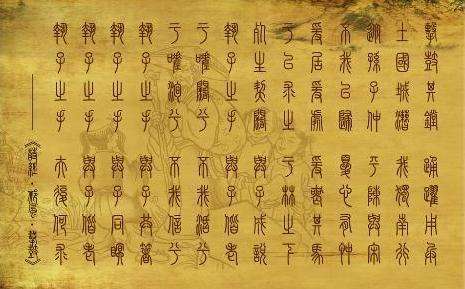 擊鼓其鏜 踊躍用兵
土國城漕 我獨南行
從孫子仲 平陳與宋
不我以歸 憂心有忡
爰居爰處 爰喪其馬
于以求之 于林之下
死生契闊 與子成說
執子之手 與子偕老
于嗟闊兮 不我活兮
于嗟洵兮 不我信兮
執子之手 與子共著
執子之手 與子同眠
執子之手 與子偕老
執子之手 夫復何求
——《詩經·邶風·擊鼓》